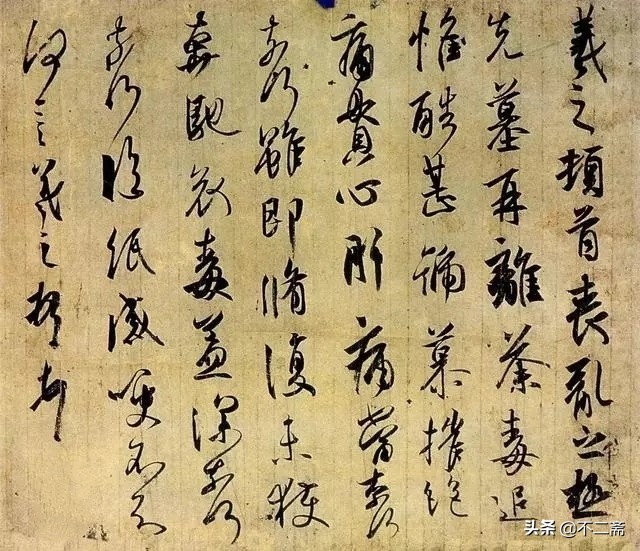 羲之頓首喪亂之極
先墓再離荼毒追
惟酷甚號慕摧絕
痛貫心肝痛當奈何
奈何雖即脩復未獲
奔馳哀毒益深奈何
奈何臨紙感哽不知
何言羲之頓首頓首
头条 @不二斋